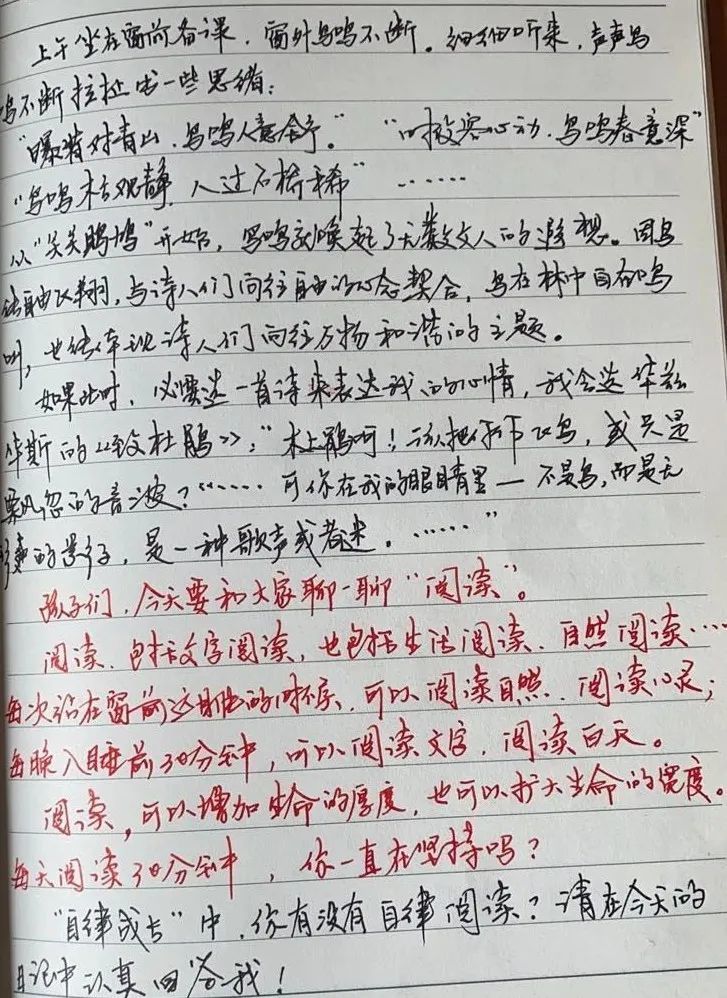 上午坐在窗前备课，窗外鸟鸣不断。细细听来，声声鸟
鸣不断拉扯出一些思绪：
"曝背对青山，鸟鸣人意舒。" "时役客心动，鸟鸣春意深"
"鸟鸣林观静，人过石桥稀" ……
从"关关雎鸠"开始，鸟鸣就唤起了无数文人的遐想。因鸟
能自由飞翔，与诗人们向往自由的心念契合，鸟在林中自在鸣
叫，也能体现诗人们向往万物和谐的主题。
如果此时，必要选一首诗来表达我的心情，我会选华兹
华斯的《致杜鹃》："杜鹃啊！该把你叫飞鸟，或只是
飘忽的音波？"…… 可你在我的眼睛里一不是鸟，而是无
的影子，是一种歌声或者谜。……"
孩子们，今天要和大家聊一聊"阅读"。
阅读，包括文字阅读，也包括生活阅读、自然阅读……
每次站在窗前远眺的时候，可以阅读自然、阅读心灵；
每晚入睡前30分钟，可以阅读文字，阅读白天。
阅读，可以增加生命的厚度，也可以扩大生命的宽度。
每天阅读30分钟，你一直在坚持吗？
"自律成长"中，你有没有自律阅读？请在今天的
日记中认真回答我！